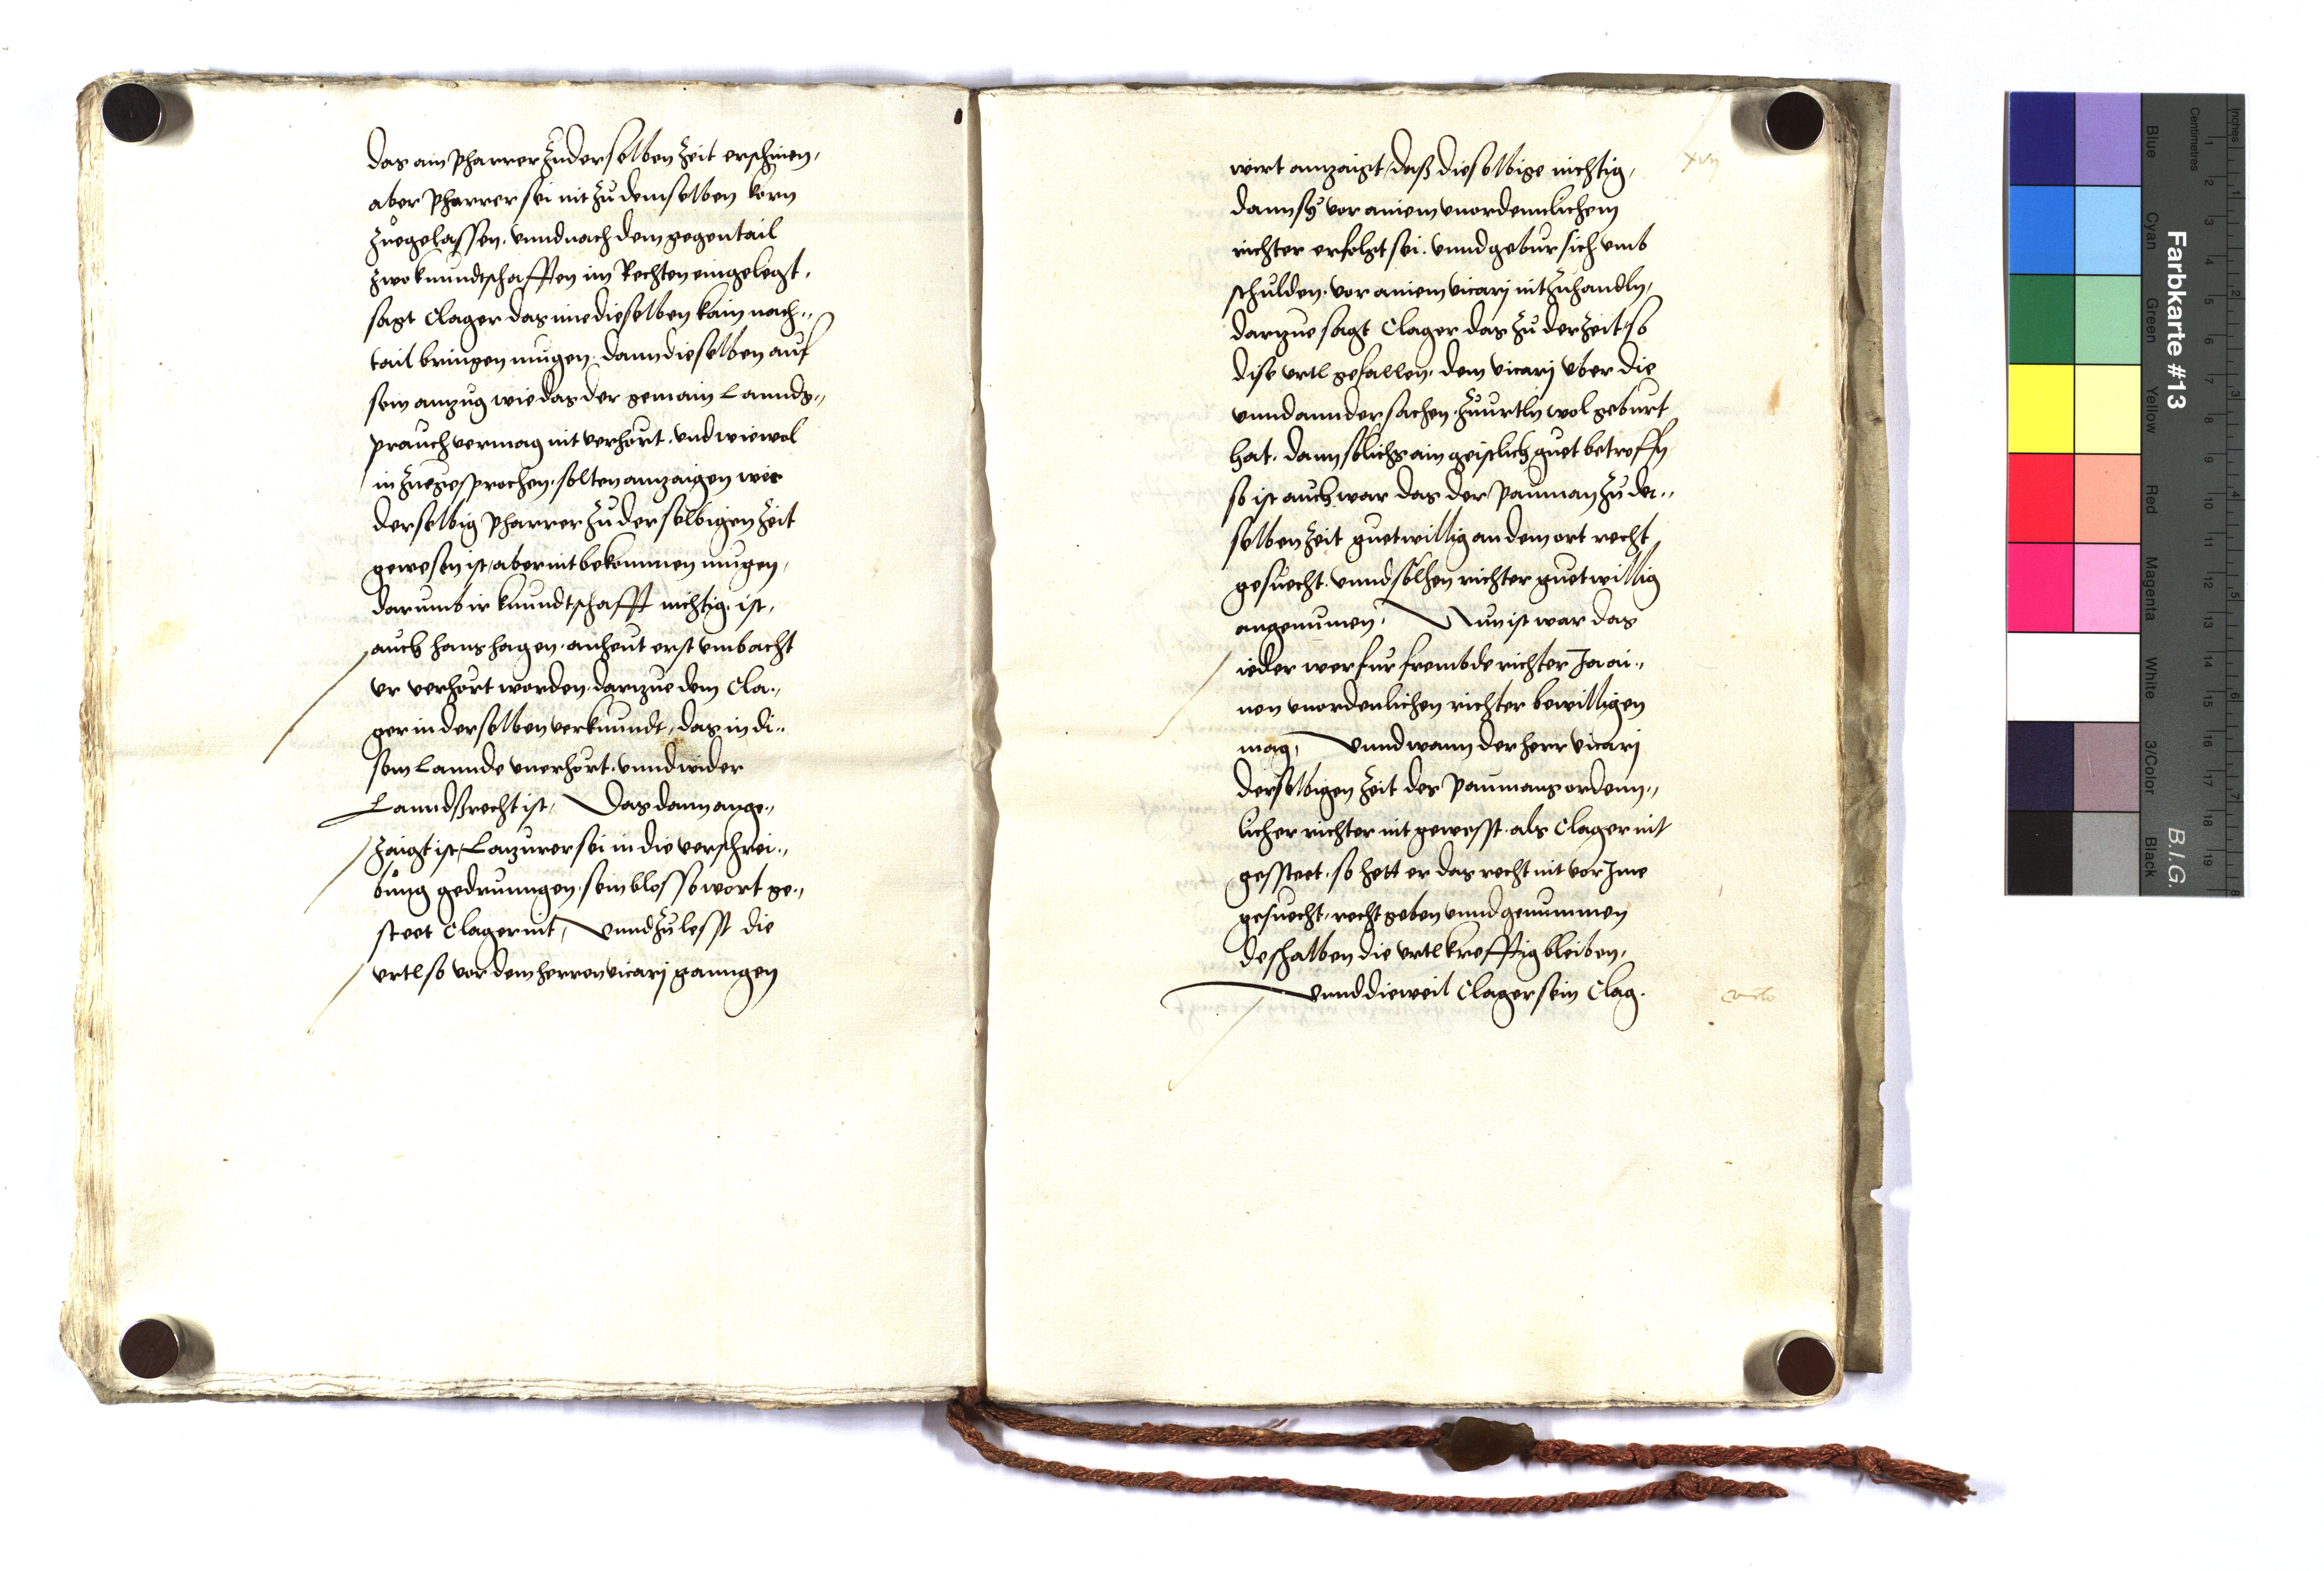 das ain Pharrer zu derselben zeit erschinen,
aber Pharrer sei nit zu demselben korn
zuegelassen. vnnd nach dem gegentail
zwo kunndtschafften im Rechten eingelegt,
sagt Clager das ime dieselben kain nach„
tail bringen mugen. dann dieselben auf
sein anzug wie das der gemain Lannds„
prauch vermag nit verhört. vnd wiewol
in zuegesprochen. solten anzaigen wer
derselbig Pharrer zu derselbigen zeit
gewesen ist, aber nit bekommen mugen,
darumb ir kunndtschafft nichtig ist,
auch Hans Hagen. an heut erst vmb acht
vr verhört worden. darzue dem Cla„
ger in derselben verkunndt, das in di„
sem Lannde vnerhört. vnnd wider
Lanndßrecht ist, Das dann ange„
zaigt ist, Lanzurer sei in die verschrei„
bung gedrunngen. sein blosse wort ge„
steet Clager nit, vnnd zu lesst die
vrtl so vor dem herren vicarj ganngen
xvij
wirt anzaigt, daß dieselbige nichtig,
dann sy vor ainem vnordennlichem
richter erfolgt sei. vnnd gebur sich vmb
schulden. vor ainem vicarj nit zuhandln,
darzue sagt Clager das zu der zeit so
dise vrtl gefallen. dem vicarj vber die
vnnd annder sachen. zuurtln wol geburt
hat. dann sölichs ain geistlich guet betroffn
so ist auch war das der Pauman zu der„
selben zeit guetwillig an dem ort recht
gesuecht. vnnd sölhen richter guetwillig
angenumen, Nun ist war das
ieder wer fur frembde richter Jn ai„
nen vnordenlichen richter bewilligen
mag, vnnd wann der herr vicarj
derselbigen zeit des Paumans ordenn„
licher richter nit gewesst. als Clager nit
gessteet. so hett er das recht nit vor Jme
gesuecht, recht geben vnnd genummen
deshalben die vrtl krefftig bleiben,
vnnd dieweil Clager sein Clag.
Farbkarte #13
B.I.G.
Blue
Cyan
Green
Yellow
Red
Magenta
White
3/Color
Black
Inches
Centimetres
1 2 3 4 5 6 7 8 9 10 11 12 13 14 15 16 17 18 19
1 2 3 4 5 6 7 8